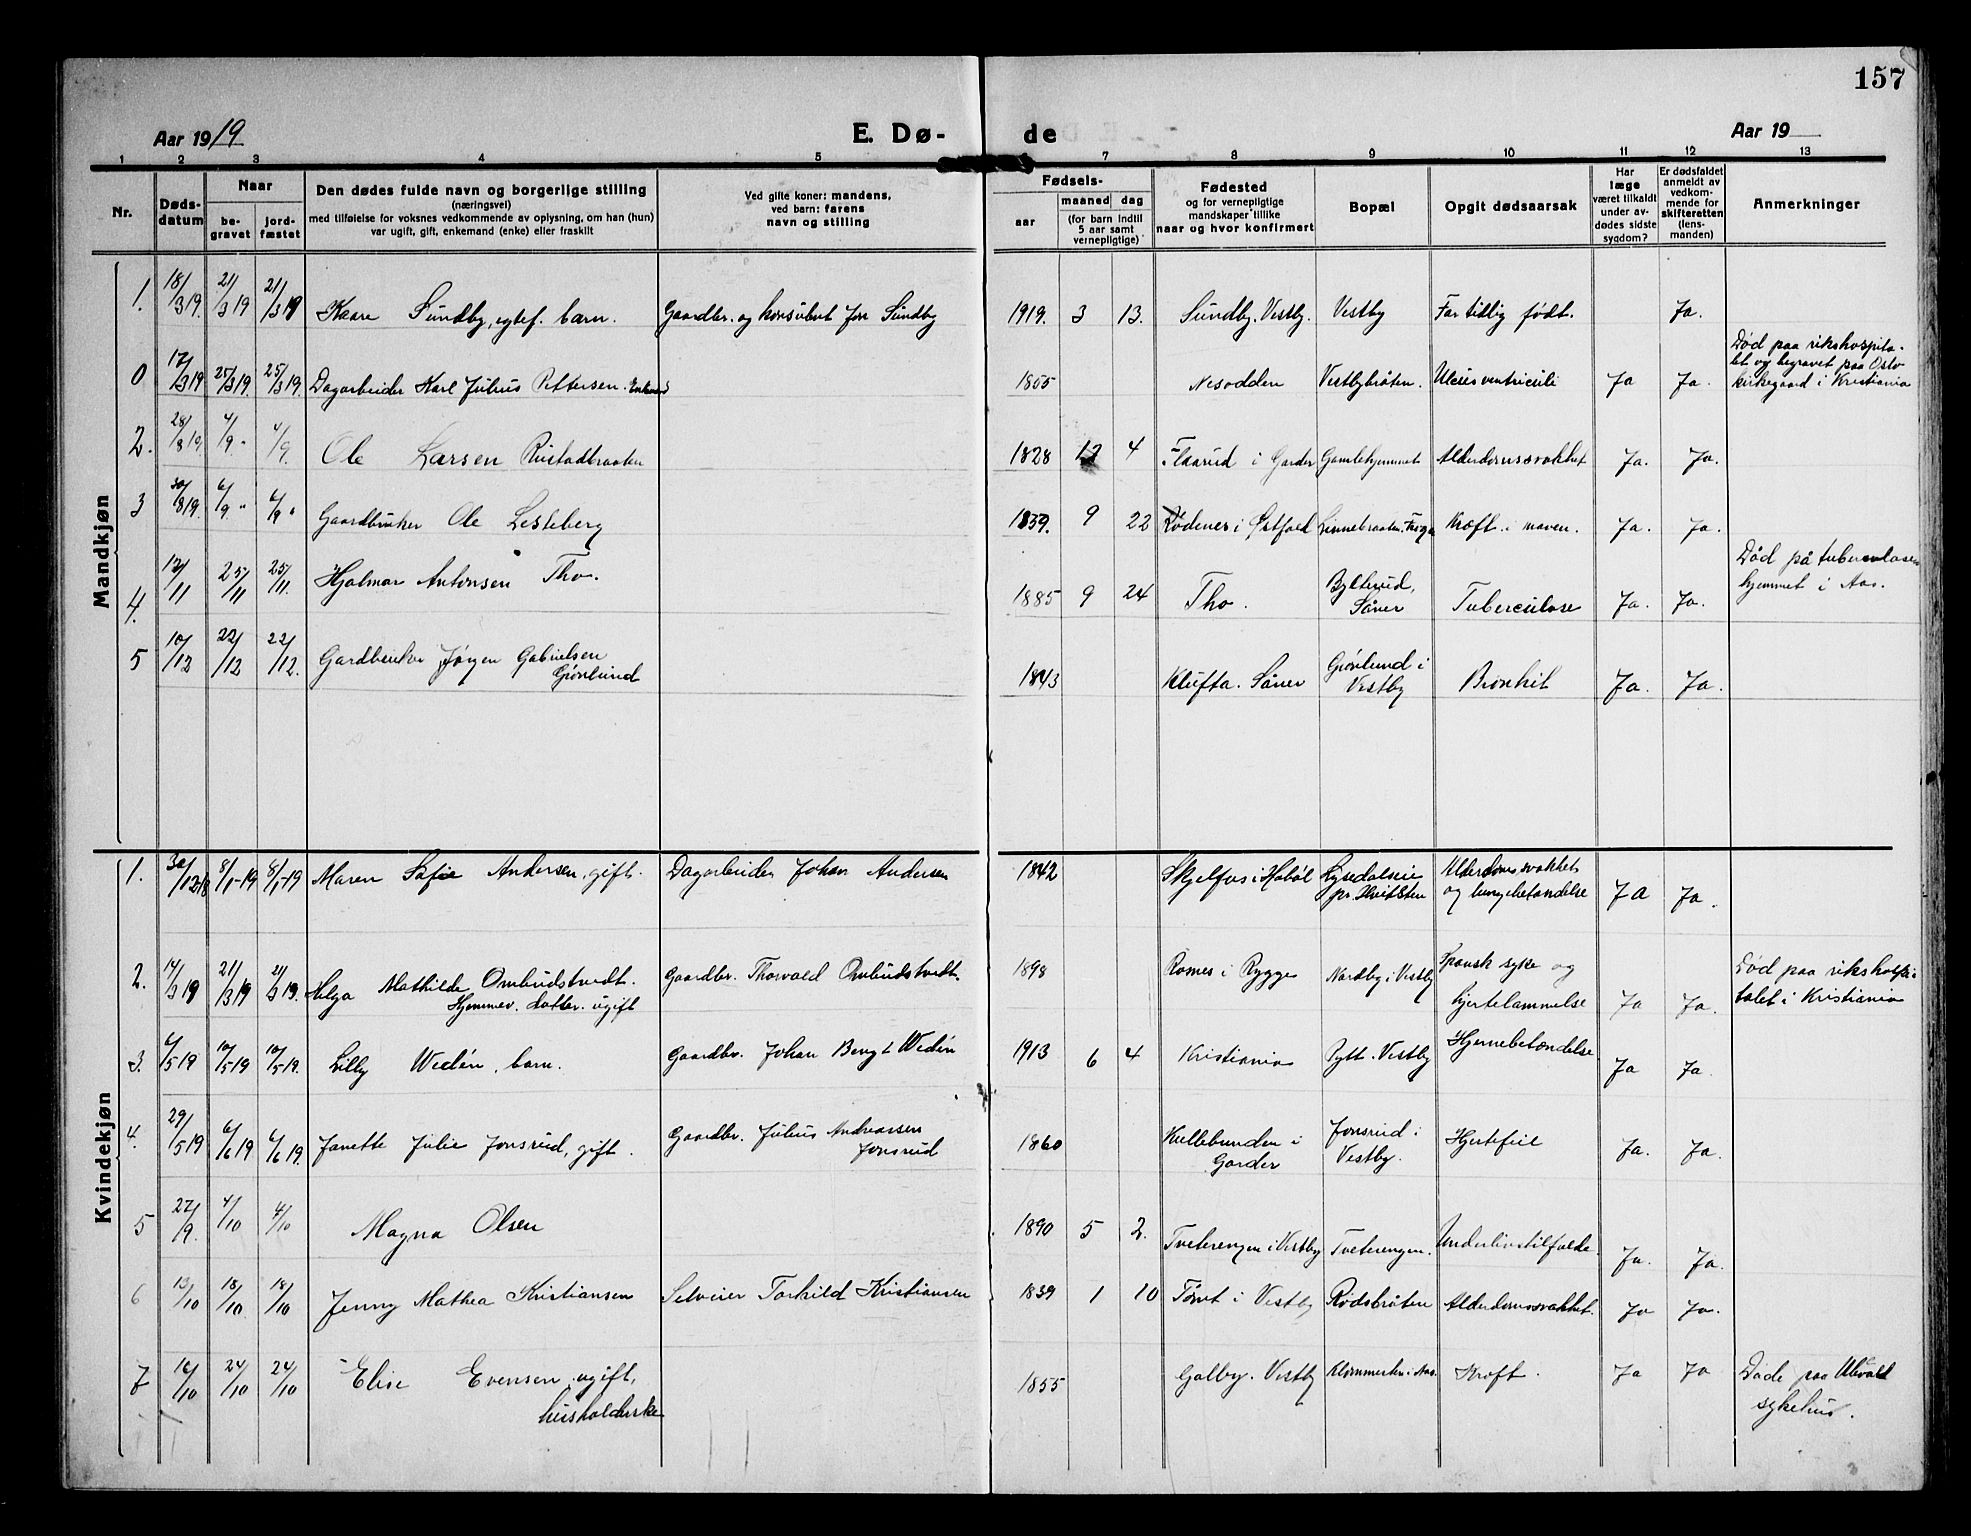 157
Aar 1919
E. Dø-
de
Aar 19
1 2 3 4 5 7 8 9 10 11 12 13
Nr.
Døds-
datum
Naar
be-
gravet
jord-
fæstet
Den dødes fulde navn og borgerlige stilling
(næringsvei)
med tilføielse for voksnes vedkommende av oplysning, om han (hun)
var ugift, gift, enkemand (enke) eller fraskilt
Ved gifte koner: mandens,
ved barn: farens
navn og stilling
Fødsels-
aar
maaned dag
(for barn indtil
5 aar samt
vernepligtige)
Fødested
og for vernepligtige
mandskaper tillike
naar og hvor konfirmert
Bopæl
Opgit dødsaarsak
Har
læge
været tilkaldt
under av-
dødes sidste
sygdom?
Er dødsfaldet
anmeldt av
vedkom-
mende for
skifteretten
(lens-
manden)
Anmerkninger
Mandkjøn
1. 18/3 19. 21/3 19 21/3 19 Kaare Sundby, egtef. barn. Gaardbr. og Sundby 1919. 3 13. Sundby. Vestby. Vestby For tidlig født. Ja.
0 17/3 19 25/3 19. 25/3 19. Dagarbeider Karl Julius Pettersen. 1855 Nesodden Vestbybråten. Ulcus ventriculi Ja Ja.
Død paa rikshospita-
let og begravet paa Oslo
kirkegaard i Kristiania
2. 28/8 19. 4/9 " 4/9. Ole Larsen Rustadbraaten 1828 12 4 Flaarud i Garder Gamlehjemmet Alderdomssvakhet Ja. Ja.
3 30/8 19. 6/9 " 6/9 " Gaardbruker Ole Lesteberg 1839. 9 22 Rødenes i Østfold Kræft i maven. Ja. Ja.
4. 12/11 25/11 25/11. Hjalmar Antonsen Tho. 1885 9 24 Tho.
Bylterud,
Såner
Tuberculose Ja. Ja.
Død på tuberculose
hjemmet i Aas.
5 10/12 22/12 22/12. Gardbruker Jørgen Gabrielsen
Grønlund
1843 Klufta. Såner
Grønlund i
Vestby
Bronkit Ja. Ja.
Kvindekjøn
1. 30/12 18 8/1-19 8/1-19 Maren Sofie Andersen, gift. Dagarbeider Johan Andersen 1842 Skjelfos i Hobøl
Lysedalseie
pr. Hvitsten
Alderdomssvakhet
og lungebetændelse
Ja Ja.
2. 14/3 19 21/3 19 21/3 19. Helga Mathilde Ombudstvedt.
Hjemmev. datter. ugift
Gaardbr. Thorvald Ombudstvedt. 1898 Romes i Rygge Nordby i Vestby
Spansk syke og
hjertelammelse
Ja Ja.
Død paa rikshospi-
talet i Kristiania
3. 6/5 19 10/5-19 10/5-19. Lilly Wedén, barn. Gaardbr. Johan Bengt Wedén 1913 6 4 Kristiania Pytt. Vestby Hjernebetændelse Ja Ja.
4. 29/5 19 6/6 19 6/6 19. Janette Julie Jonsrud, gift.
Gaardbr. Julius Andreassen
Jonsrud
1860
Kullebunden i
Garder
Jonsrud i
Vestby.
Hjertefeil Ja. Ja.
5 27/9. 4/10 4/10 Magna Olsen 1890 5 2. Tveterengen i Vestby Tveterengen. Underlivstilfælde. Ja. Ja.
6 13/10 18/10 18/10 Jenny Mathea Kristiansen Selveier Torkild Kristiansen 1839 1 10 Tømt i Vestby Rødsbråten Alderdomssvakhet. Ja Ja.
7 16/10 24/10 24/10 Elise Evensen, ugift,
husholderske
1855 Galby. Vestby Kræft. Ja Ja
Døde paa Ullevål
sykehus.